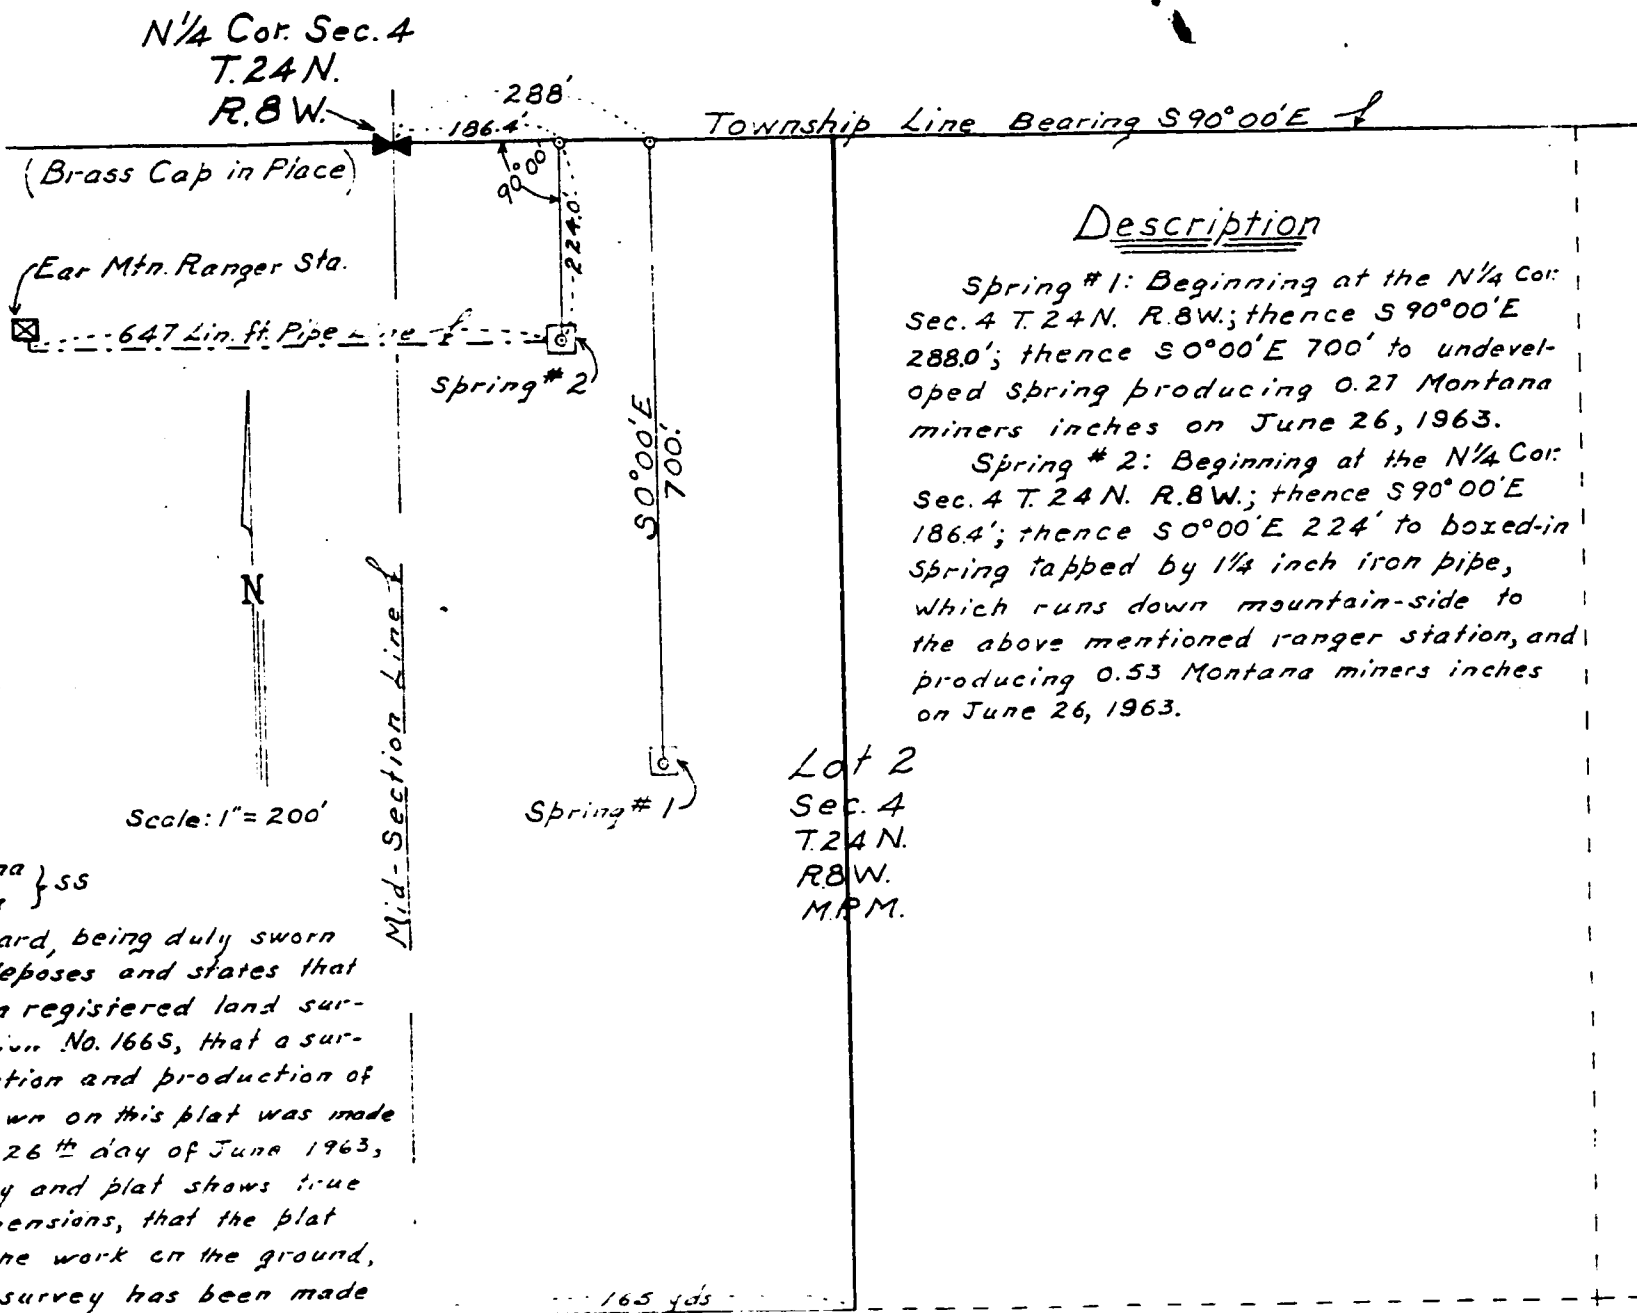 N 1/4 Cor. Sec. 4
T. 24 N.
R. 8 W.
288'
186.4'
Township Line Bearing S 90° 00' E
(Brass Cap in Place)
90° 00'
224.0'
Ear Mtn. Ranger Sta.
647 Lin. ft. Pipe Line
Spring # 2
S 0° 00' E
700.'
N
Mid-Section Line
Scale: 1" = 200'
Spring # 1
Lot 2
Sec. 4
T. 24 N.
R 8 W.
M.P.M.
Description
Spring # 1: Beginning at the N 1/4 Cor.
Sec. 4 T. 24 N. R. 8 W.; thence S 90° 00' E
288.0'; thence S 0° 00' E 700' to undevel-
oped spring producing 0.27 Montana
miners inches on June 26, 1963.
Spring # 2: Beginning at the N 1/4 Cor.
Sec. 4 T. 24 N. R. 8 W.; thence S 90° 00' E
186.4'; thence S 0° 00' E 224' to boxed-in
spring tapped by 1 1/4 inch iron pipe,
which runs down mountain-side to
the above mentioned ranger station, and
producing 0.53 Montana miners inches
on June 26, 1963.
na } ss
ard, being duly sworn
deposes and states that
a registered land sur-
No. 166S, that a sur-
tion and production of
wn on this plat was made
26 th day of June 1963,
y and plat shows true
ensions, that the plat
he work on the ground,
survey has been made
165 yds